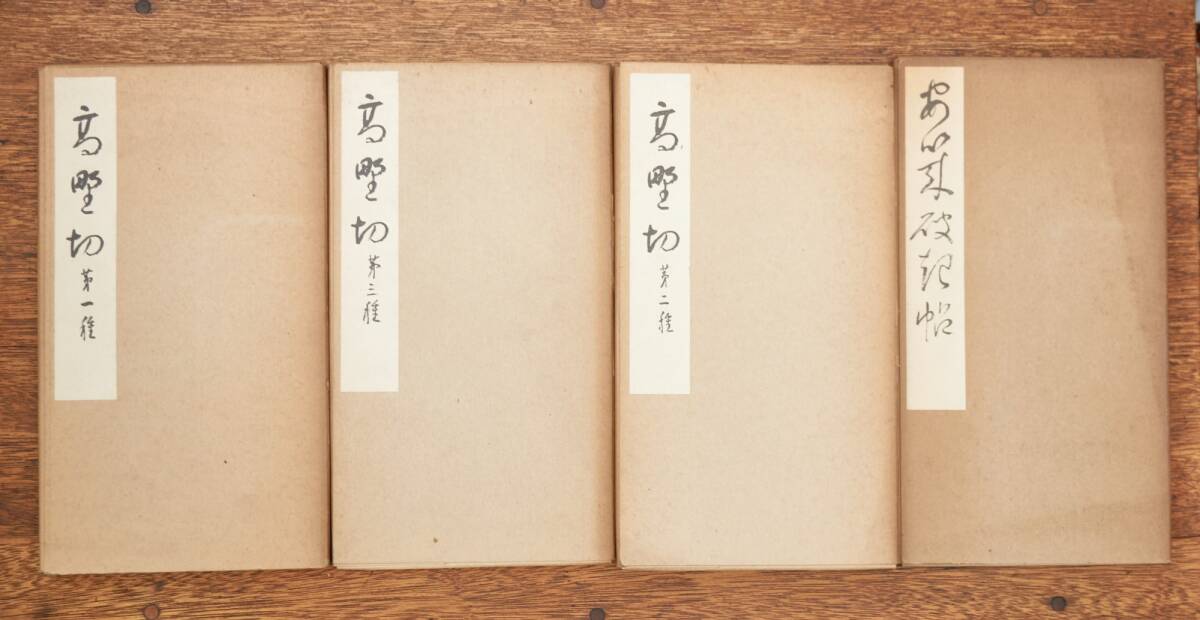 高野切 第一種
高野切 第三種
高野切 第二種
安幾破起帖